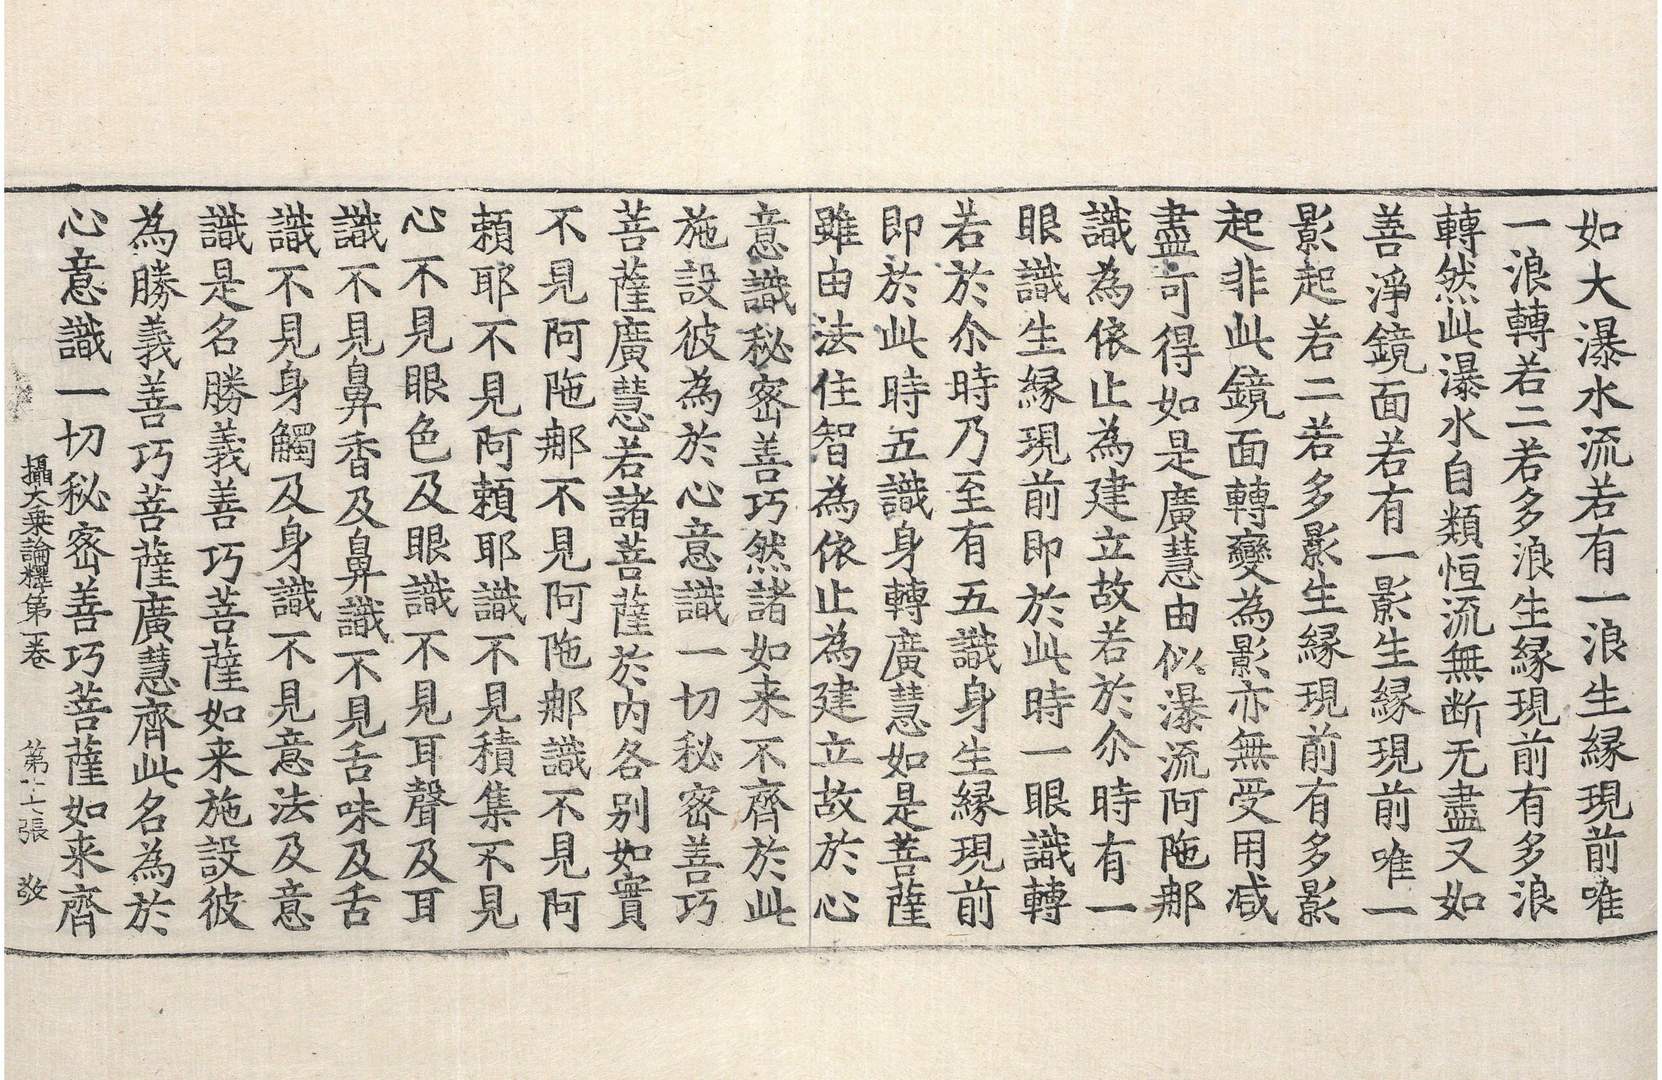 如大瀑水流若有一浪生縁現前唯
一浪轉若二若多浪生縁現前有多浪
轉然此瀑水自類恒流無断无盡又如
善淨鏡面若有一影生縁現前唯一
影起若二若多影生縁現前有多影
起非此鏡面轉變為影亦無受用减
盡可得如是廣慧由似瀑流阿陁𨚗
識為依止為建立故若於尒時有一
眼識生縁現前即於此時一眼識轉
若於尒時乃至有五識身生縁現前
即於此時五識身轉廣慧如是菩薩
雖由法住智為依止為建立故於心
意識秘密善巧然諸如来不齊於此
施設彼為於心意識一切秘密善巧
菩薩廣慧若諸菩薩於内各别如實
不見阿陁𨚗不見阿陁𨚗識不見阿
頼耶不見阿頼耶識不見積集不見
心不見眼色及眼識不見耳聲及耳
識不見鼻香及鼻識不見舌味及舌
識不見身觸及身識不見意法及意
識是名勝義善巧菩薩如来施設彼
為勝義善巧菩薩廣慧齊此名為於
心意識一切秘密善巧菩薩如来齊
攝大乗論釋第一卷 第十七張 敬